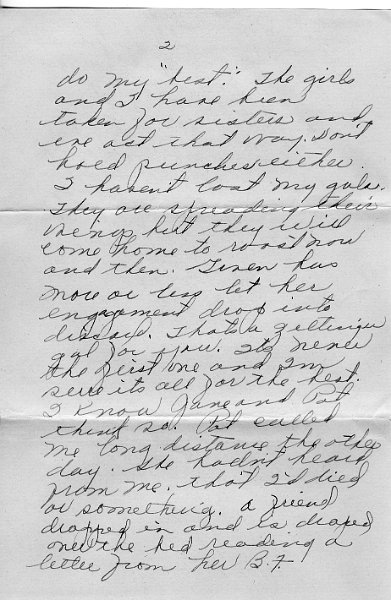 2
do my "best." The girls
and I have been
taken for sisters and
we act that way. Don't
hold punches either.
I haven't lost my gals.
They are spreading their
wings but they will
come home to roost now
and then. has
more or less let her
engagement drop into
discard. That's a
gal for you. It's never
the first one and I'm
sure its all for the best.
I know Jane and Pat
think so. Pat called
me long distance the other
day. She hadn't heard
from me. that I'd died
or something. A friend
dropped in and is draped
over the bed reading a
letter from her B.F.